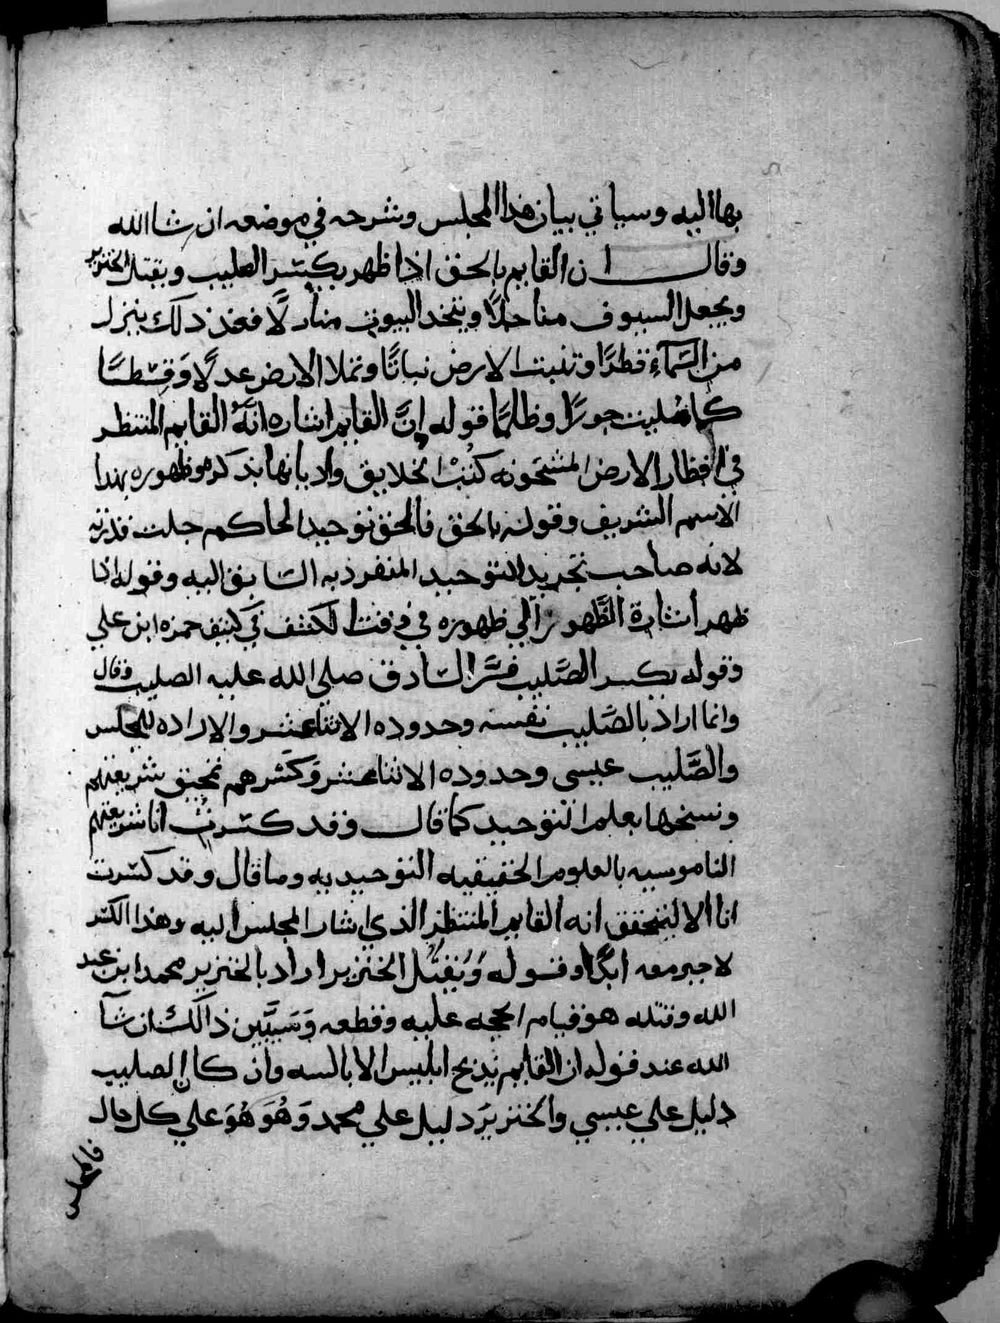 بها اليه وسياتي بيان هذا المجلس وشرحه في موضعه ان شا الله
وقال ان القايم بالحق اذا ظهر يكسّر الصليب ويقتل الخنزير
ويجعل السيوف مناجلًا ويتخد البيوت منازلًا فعند ذلك ينزل
من السَّمآءِ قطرًا وتنبت الارض نباتًا وتملا الارض عدلًا وَقِسْطًا
كما مُليت جورًا وظلمًا قوله إنَّ القايم اشاره انَّهُ القايم المنتظر
في اقطار الارض المشحونه كتبْ الخلايق واديانها بذكره وظهوره بهدا
الاسم الشريف وقوله بالحق فالحق توحيد الحاكم جلت قدرته
لانه صاحب تجريد التوحيد المنفرد به السّابق اليه وقوله اذا
ظهر أشارة الظَّهور الي ظهوره في وقت الكشف في كنف حمزه ابن علي
وقوله يكسر الصَّليب فسَّر السّادق صلي الله عليه الصليب وقال
وانما اراد بالصَّليب نفسه وحدوده الاثناعشر والاراده للمجلس
والصَّليب عيسى وحدوده الاثناعشر وَكسَّرهم تمحيق شريعتهم
ونسخها بعلم التوحيد كما قال وقد كسّرتُ انا شريعتهم
الناموسيه بالعلوم الحقيقيه التوحيديه وما قال وقد كسّرت
انا الا ليتحقق انه القايم المنتظر الذي اشار المجلس اليه وهذا الكسر
لا جبر معه ابدًا وقوله وَيُقتلُ الخنزير اراد بالخنزير محمد ابن عبد
الله وقتله هو قيام الحجه عليه وقطعه وَسَيَبِّين ذالك ان شآ
الله عند قوله ان القايم يذبح ابليس الابالسه وان كان الصليب
دليل علي عيسي والخنزير دليل علي محمد وَهُوَ هُوَ علي كل حال